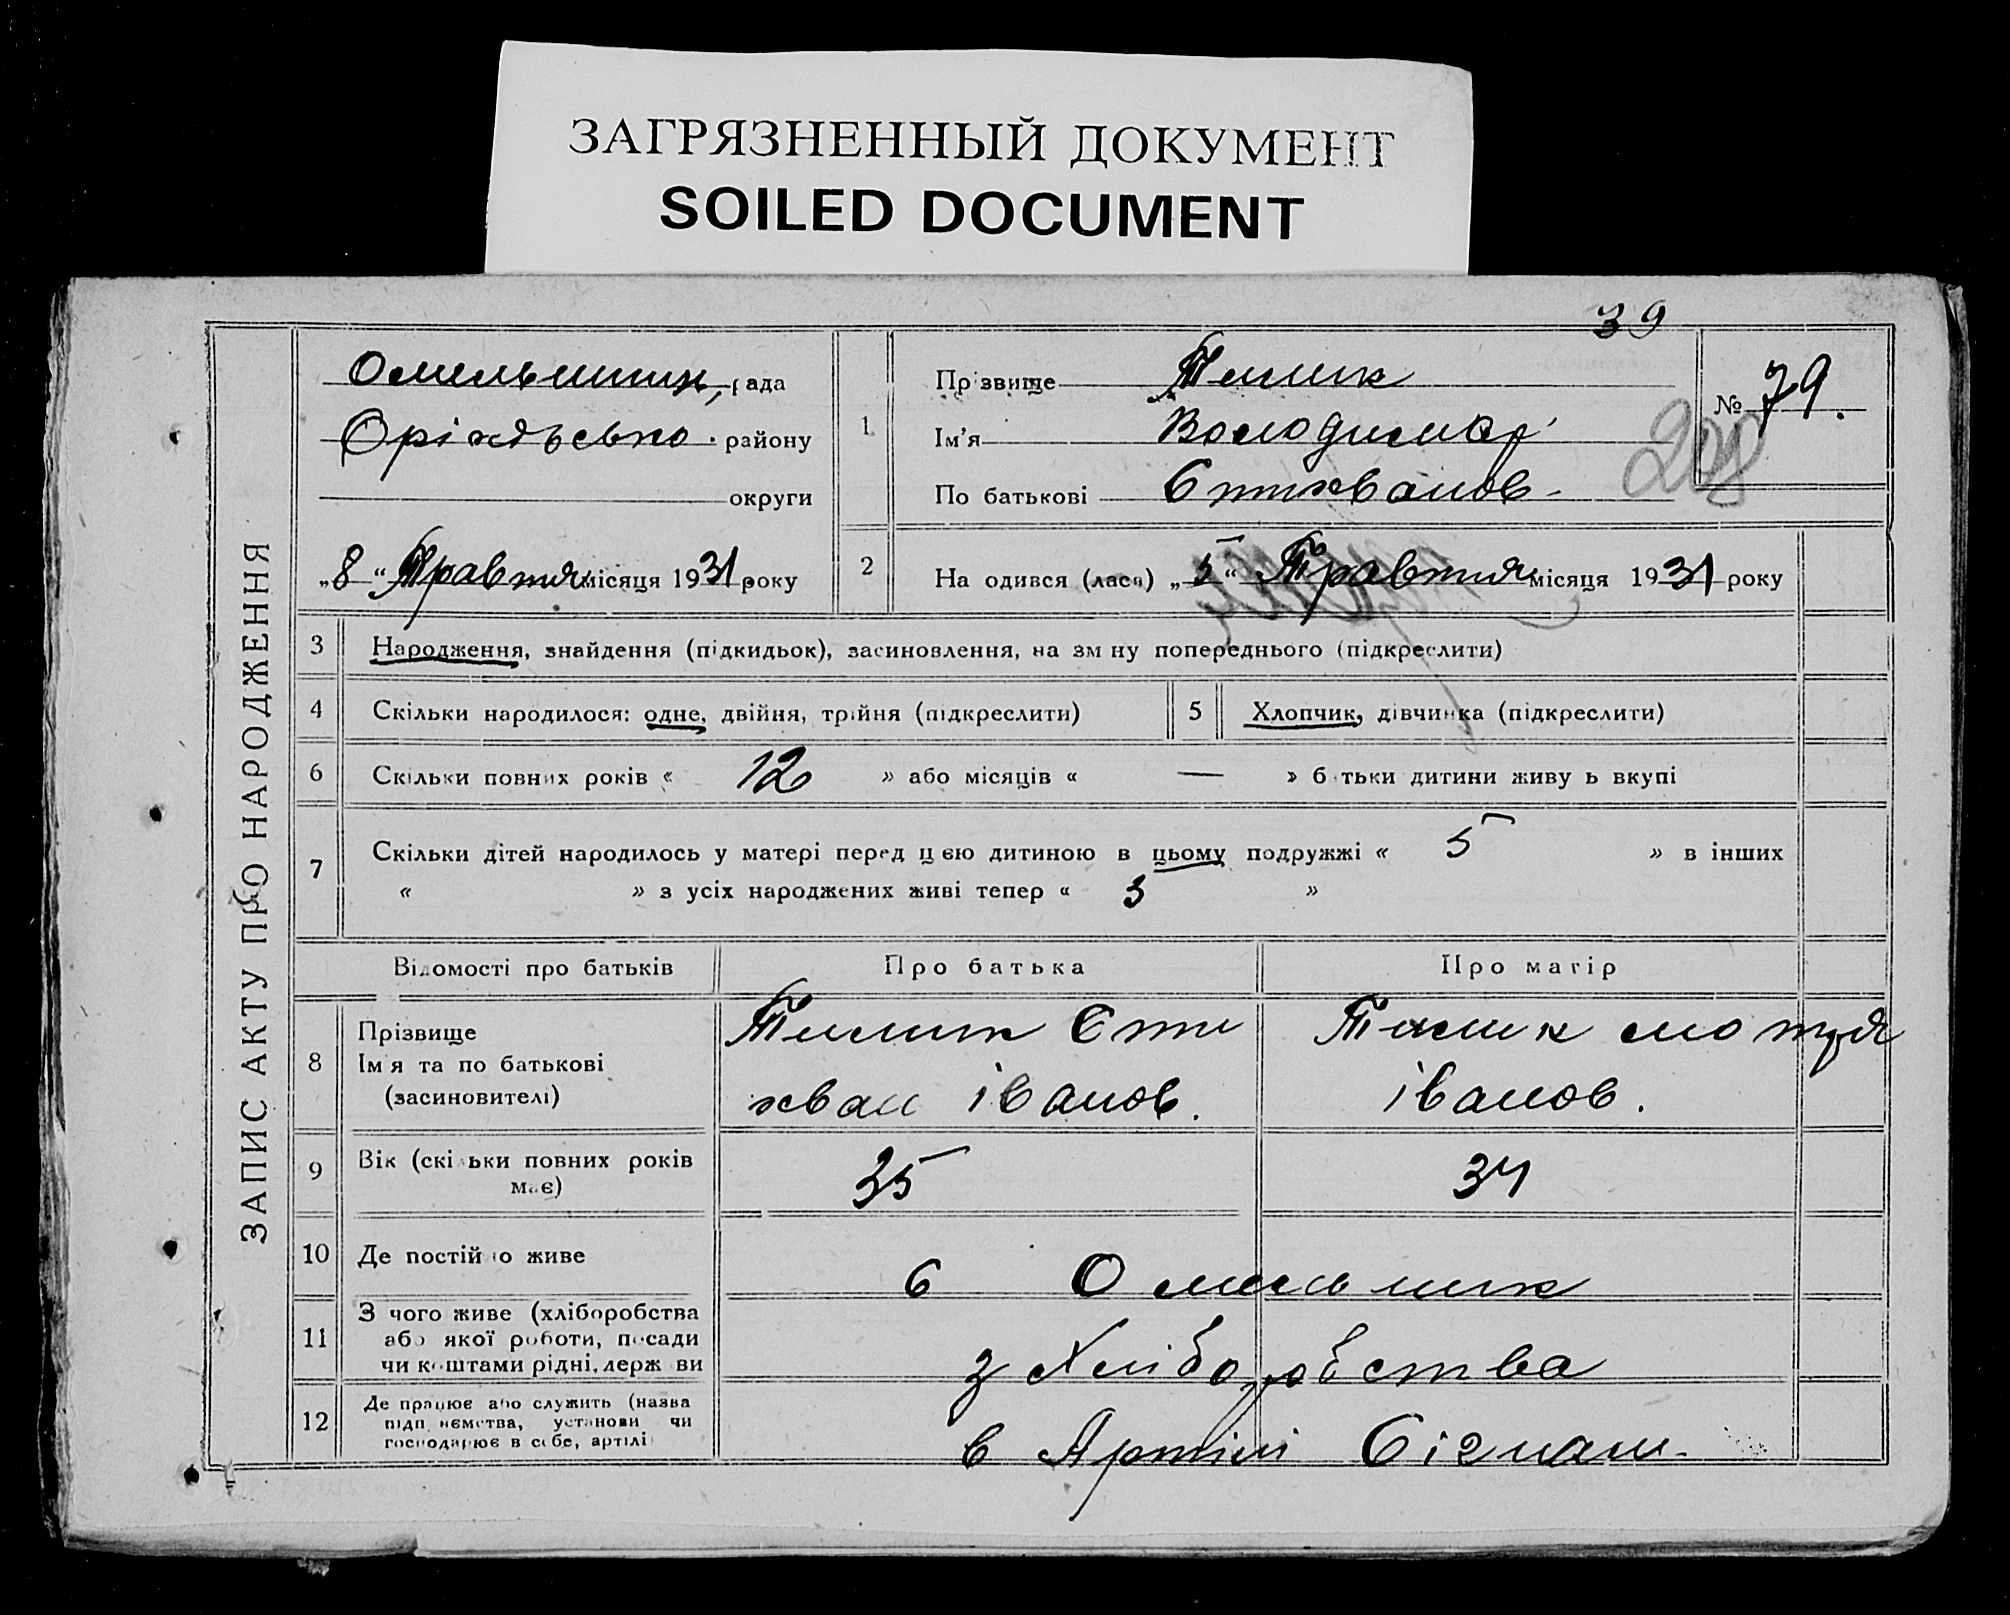 ЗАГРЯЗНЕННЫЙ ДОКУМЕНТ
SOILED DOCUMENT
39
ЗАПИС АКТУ ПРО НАРОДЖЕННЯ
Омельниц, рада
Оріхівсько. району
округи
„8“ Травтня місяця 1931 року
1
Прізвище Тимик
Ім'я Володимир
По батькові Єпихванов-
№ 79.
208
2
На одився (лася) „5“ Травтня місяця 1931 року
3 Народження, знайдення (підкидьок), засиновлення, на зміну попереднього (підкреслити)
4 Скільки народилося: одне, двійня, трійня (підкреслити)
5 Хлопчик, дівчинка (підкреслити)
6 Скільки повних років « 12 » або місяців « — » батьки дитини живуть вкупі
7 Скільки дітей народилось у матері перед цією дитиною в цьому подружжі « 5 » в інших
« » з усіх народжених живі тепер « 3 »
Відомості про батьків Про батька Про матір
8 Прізвище
Ім'я та по батькові
(засиновителі)
Тимик Єпи
хван іванов.
Тимик мотря
іванов.
9 Вік (скільки повних років
має)
35 34
10 Де постійно живе
с Омельник
11 З чого живе (хліборобства
або якої роботи, посади
чи коштами рідні, держави
з Хліборобства
12 Де працює або служить (назва
підприємства, установи чи
господарює в себе, артілі
в Артілі